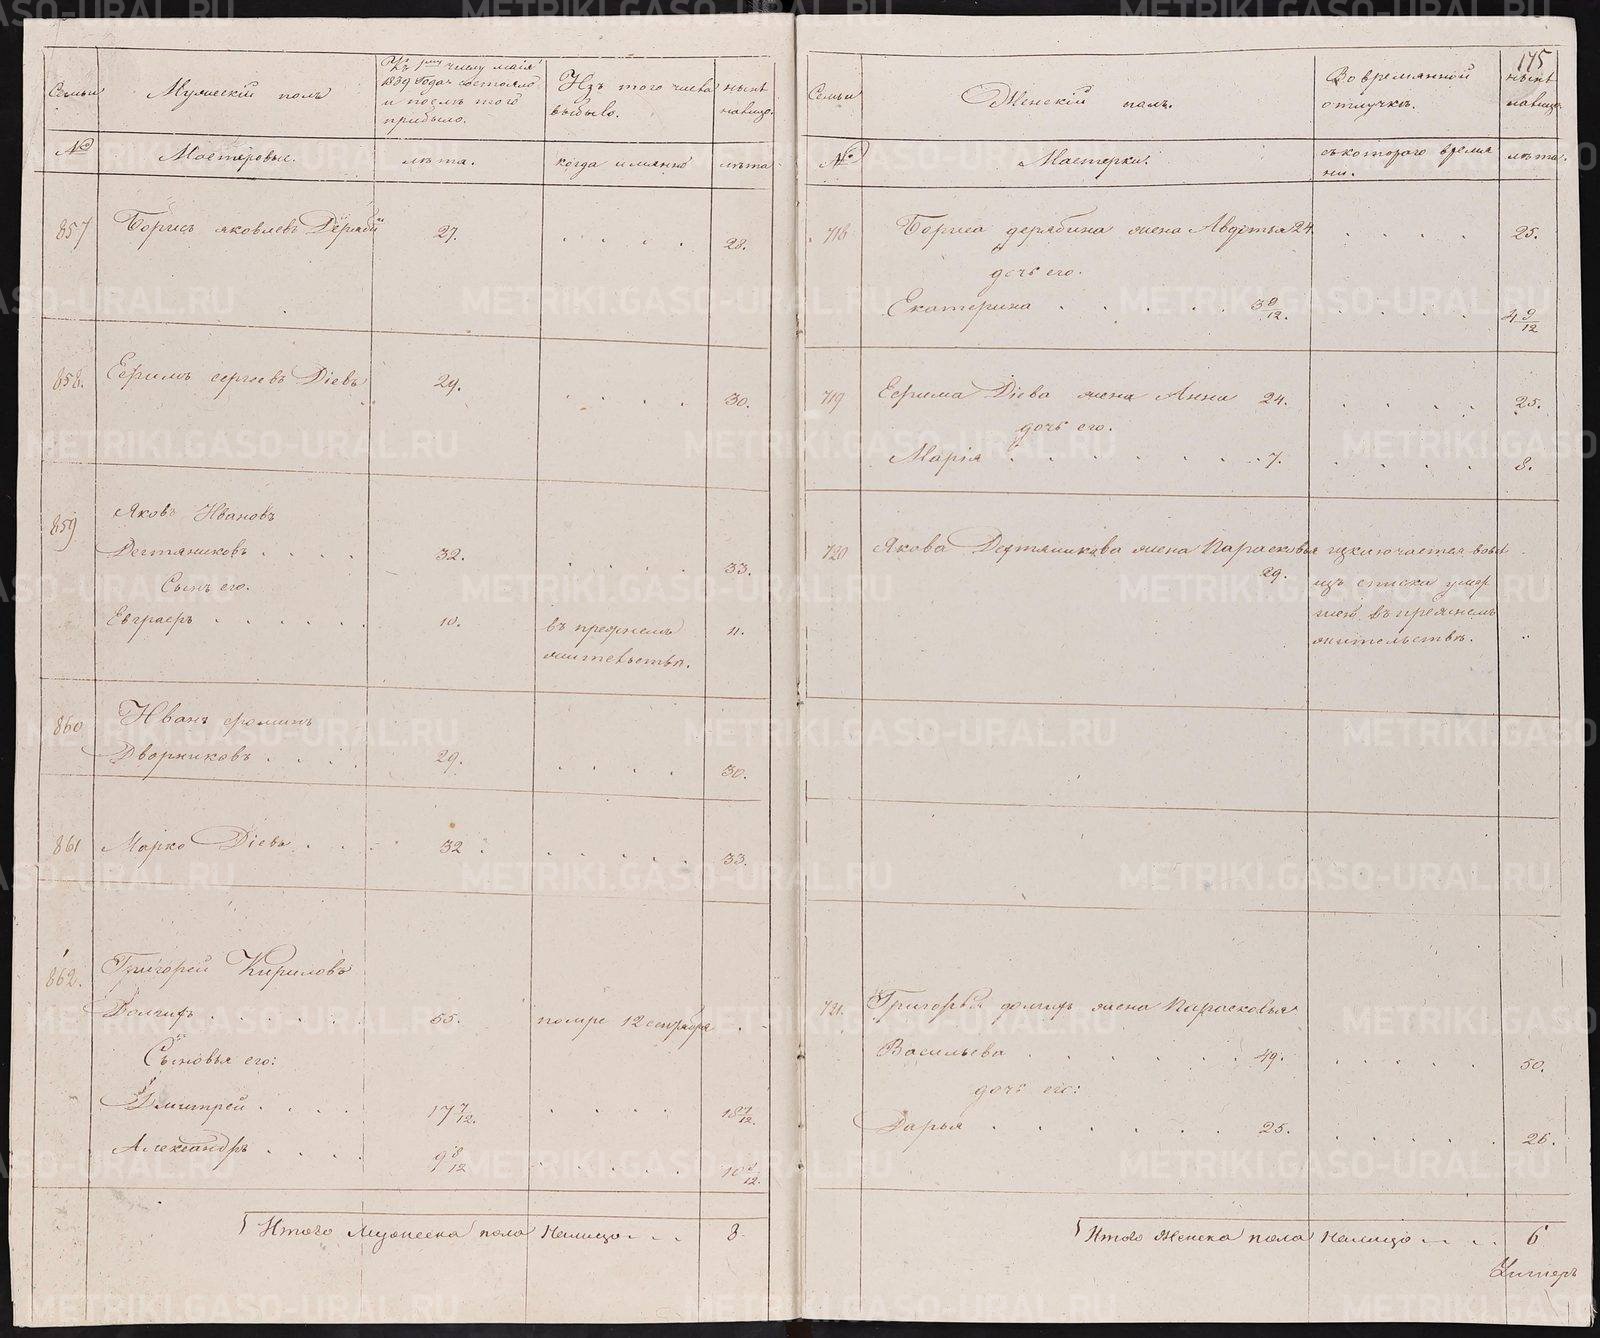 Семьи
Мужескій полъ
Къ 1му числу маія
1839 года состояло
и послѣ того
прибыло.
Изъ того числа
выбыло.
нынѣ
налицо.
№
Мастеровые.
лѣта.
когда имянно
лѣта
857
Борисъ яковлевъ
27.
28.
858.
Ефимъ сергѣевъ Діевъ
29.
30.
859
Яковъ Ивановъ
Дегтяниковъ
32.
33.
Сынъ его.
Евграфъ
10.
въ прежнемъ
жительствѣ.
11.
860
Иванъ фоминъ
Дворниковъ
29.
30.
861
Марко Діевъ
32
33.
862.
Григорей Кириловъ
Долгихъ
55.
помре 12 сентября
Сыновья его:
Дмитрей
17 7/12.
18 7/12.
Александръ
9 8/12
10 8/12.
Итого Мужеска пола Налицо
8.
175
Семьи
Женскій полъ.
Во времянной
отлучкѣ.
нынѣ
налицо.
№
Мастерки.
съ котораго время
ни.
лѣта.
718
Бориса дерябина жена Авдотья 24.
25.
дочь его.
Екатерина
3 9/12.
4 9/12
719
Ефима Діева жена Анна 24.
25.
дочь его.
Марія
7.
8.
720
Якова Дегтяникова жена Парасковья
29.
изключается вовсе
изъ списка умер
шею въ прежнемъ
жительствѣ.
721.
Григорья долгихъ жена Парасковья
Васильева
49.
50.
дочь его:
Дарья
25.
26.
Итого Женска пола Налицо
6
METRIKI.GASO-URAL.RU